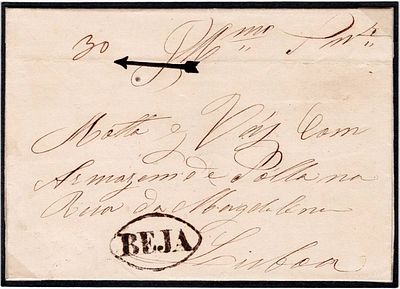 30
Motta & Vaz Com
Armazem de Solla na
Rua da Magdalena
BEJA
Lisboa